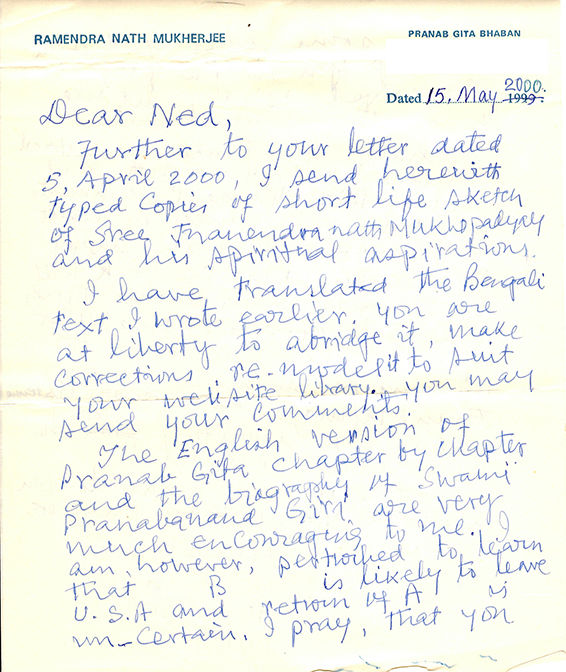 RAMENDRA NATH MUKHERJEE
PRANAB GITA BHABAN
Dated 15, May 1999. 2000.
Dear Ned,
Further to your letter dated
5, April 2000, I send herewith
typed Copies of short life sketch
of Sree Jnanendranath Mukhopadyay
and his spiritual aspirations.
I have translated the Bengali
text I wrote earlier. you are
at liberty to abridge it, make
corrections, re-model it to suit
your website library. you may
send your comments.
The English version of
Pranab Gita chapter by chapter
and the biography of Swami
Pranabanand Giri are very
much encouraging to me. I
am, however, perturbed to learn
that B is likely to leave
U.S.A and return of A is
un-certain. I pray, that you